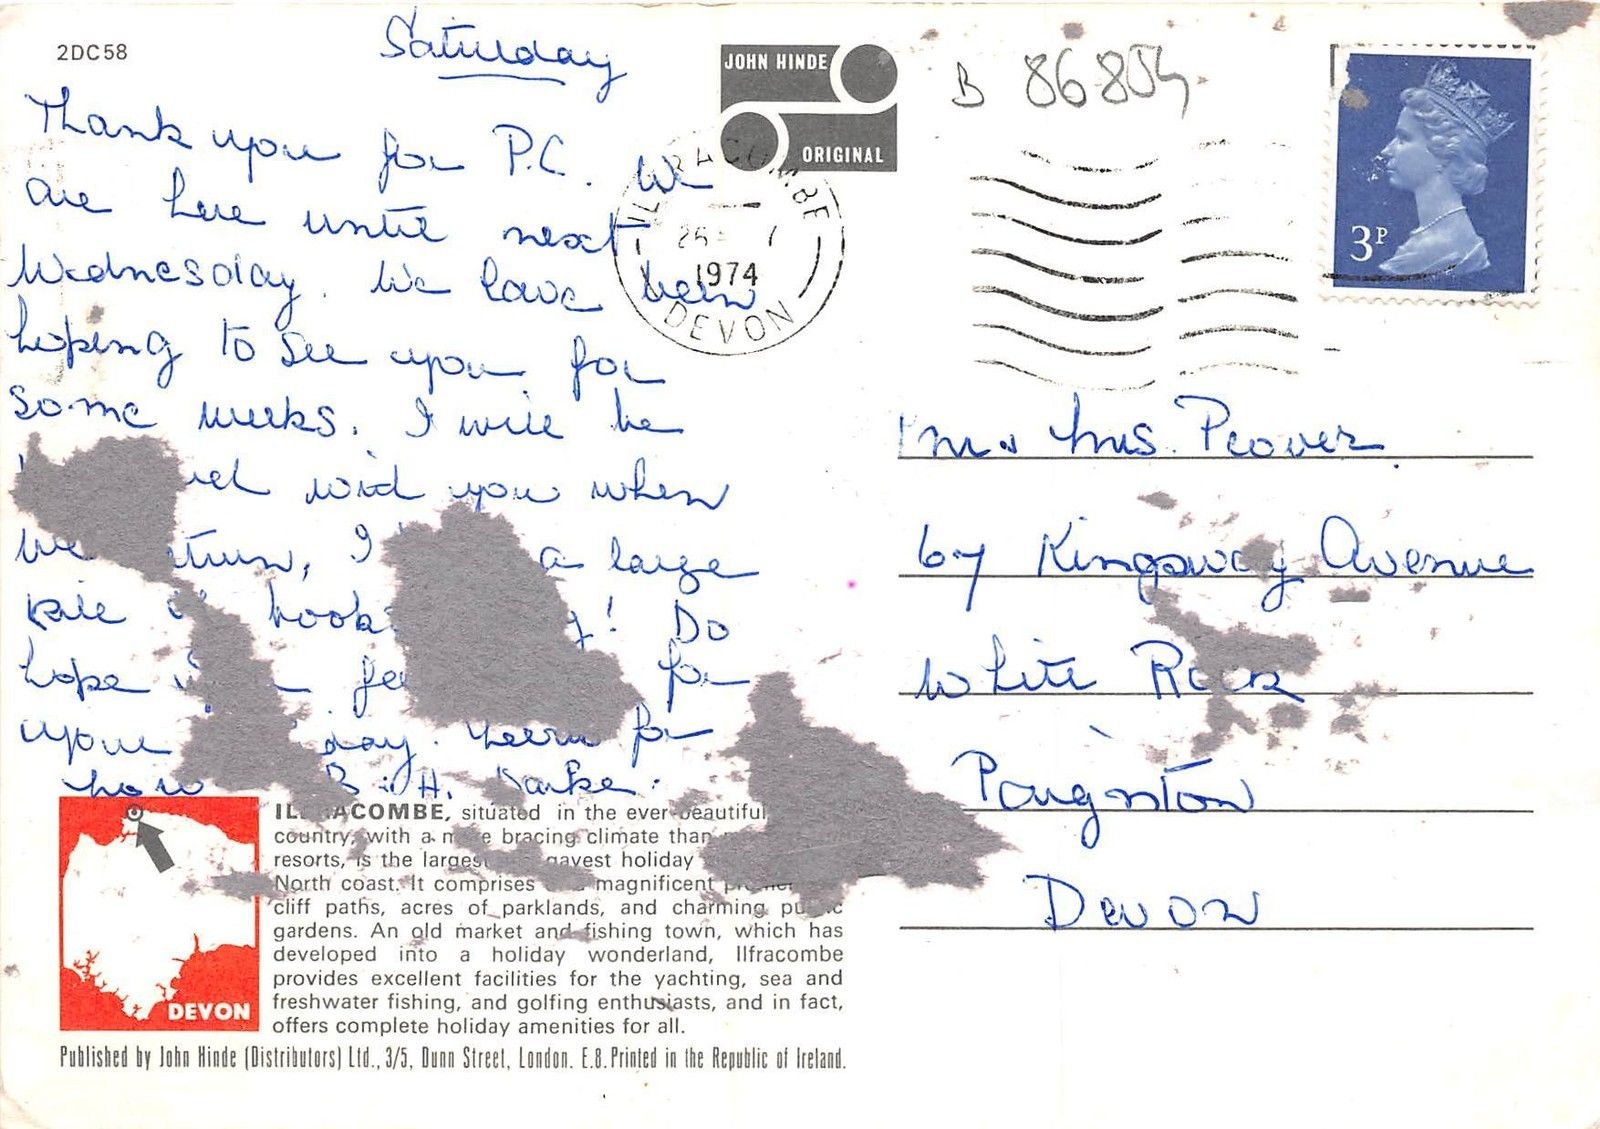 2DC58
Saturday
Thank you for P.C. We
are here until next
Wednesday. We have been
hoping to see you for
some weeks. I will be
wid you when
we I a large
hook ! Do
hope for
your for
now B. H.
JOHN HINDE
ORIGINAL
B 86854
ILFRACOMBE
1974
DEVON
3P
Mr Mrs. Peover.
67 Kingsway Avenue
White Rock
Paignton
Devon
ILFRACOMBE, situated in the ever-beautiful
country, with a more bracing climate than
resorts, is the largest gayest holiday
North coast. It comprises magnificent
cliff paths, acres of parklands, and charming public
gardens. An old market and fishing town, which has
developed into a holiday wonderland, Ilfracombe
provides excellent facilities for the yachting, sea and
freshwater fishing, and golfing enthusiasts, and in fact,
offers complete holiday amenities for all.
DEVON
Published by John Hinde (Distributors) Ltd., 3/5, Dunn Street, London. E.8. Printed in the Republic of Ireland.